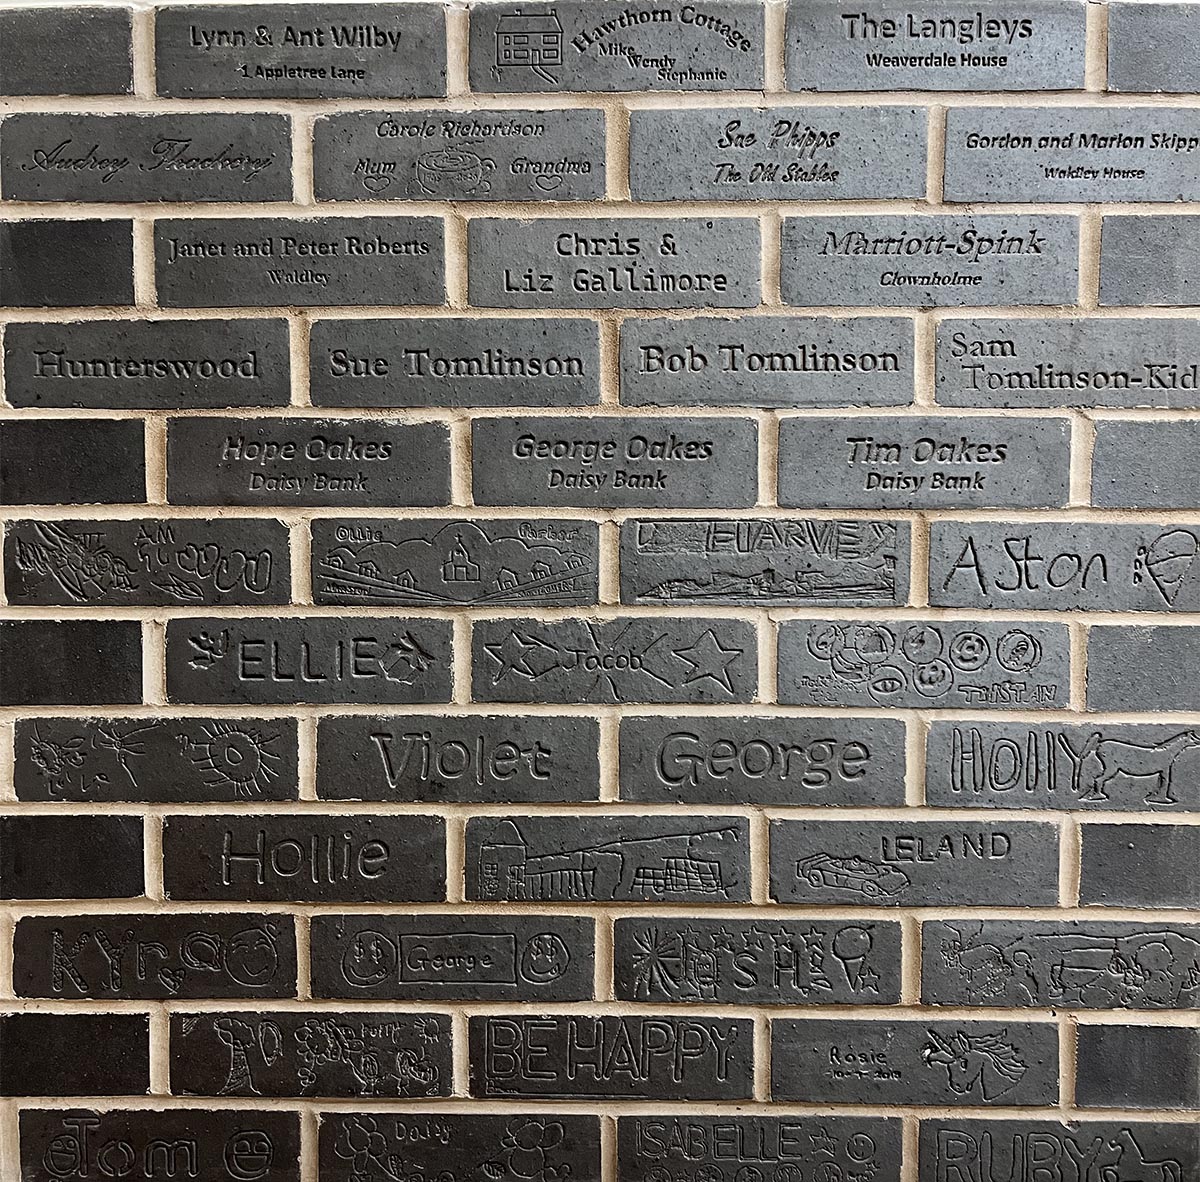 Lynn & Ant Wilby
1 Appletree Lane
Hawthorn Cottage
Mike
Wendy
Stephanie
The Langleys
Weaverdale House
Audrey Thackery
Carole Richardson
Mum
Grandma
Sue Phipps
The Old Stables
Gordon and Marion Skipp
Waldley House
Janet and Peter Roberts
Waldley
Chris &
Liz Gallimore
Marriott-Spink
Clownholme
Hunterswood
Sue Tomlinson
Bob Tomlinson
Sam
Tomlinson-Kid
Hope Oakes
Daisy Bank
George Oakes
Daisy Bank
Tim Oakes
Daisy Bank
Ollie
Barker
HARVEY
Aston
ELLIE
Jacob
TRISTAN
Violet
George
Holly
Hollie
LELAND
Kyra
George
BE HAPPY
Rosie
Tom
Daisy
ISABELLE
RUBY